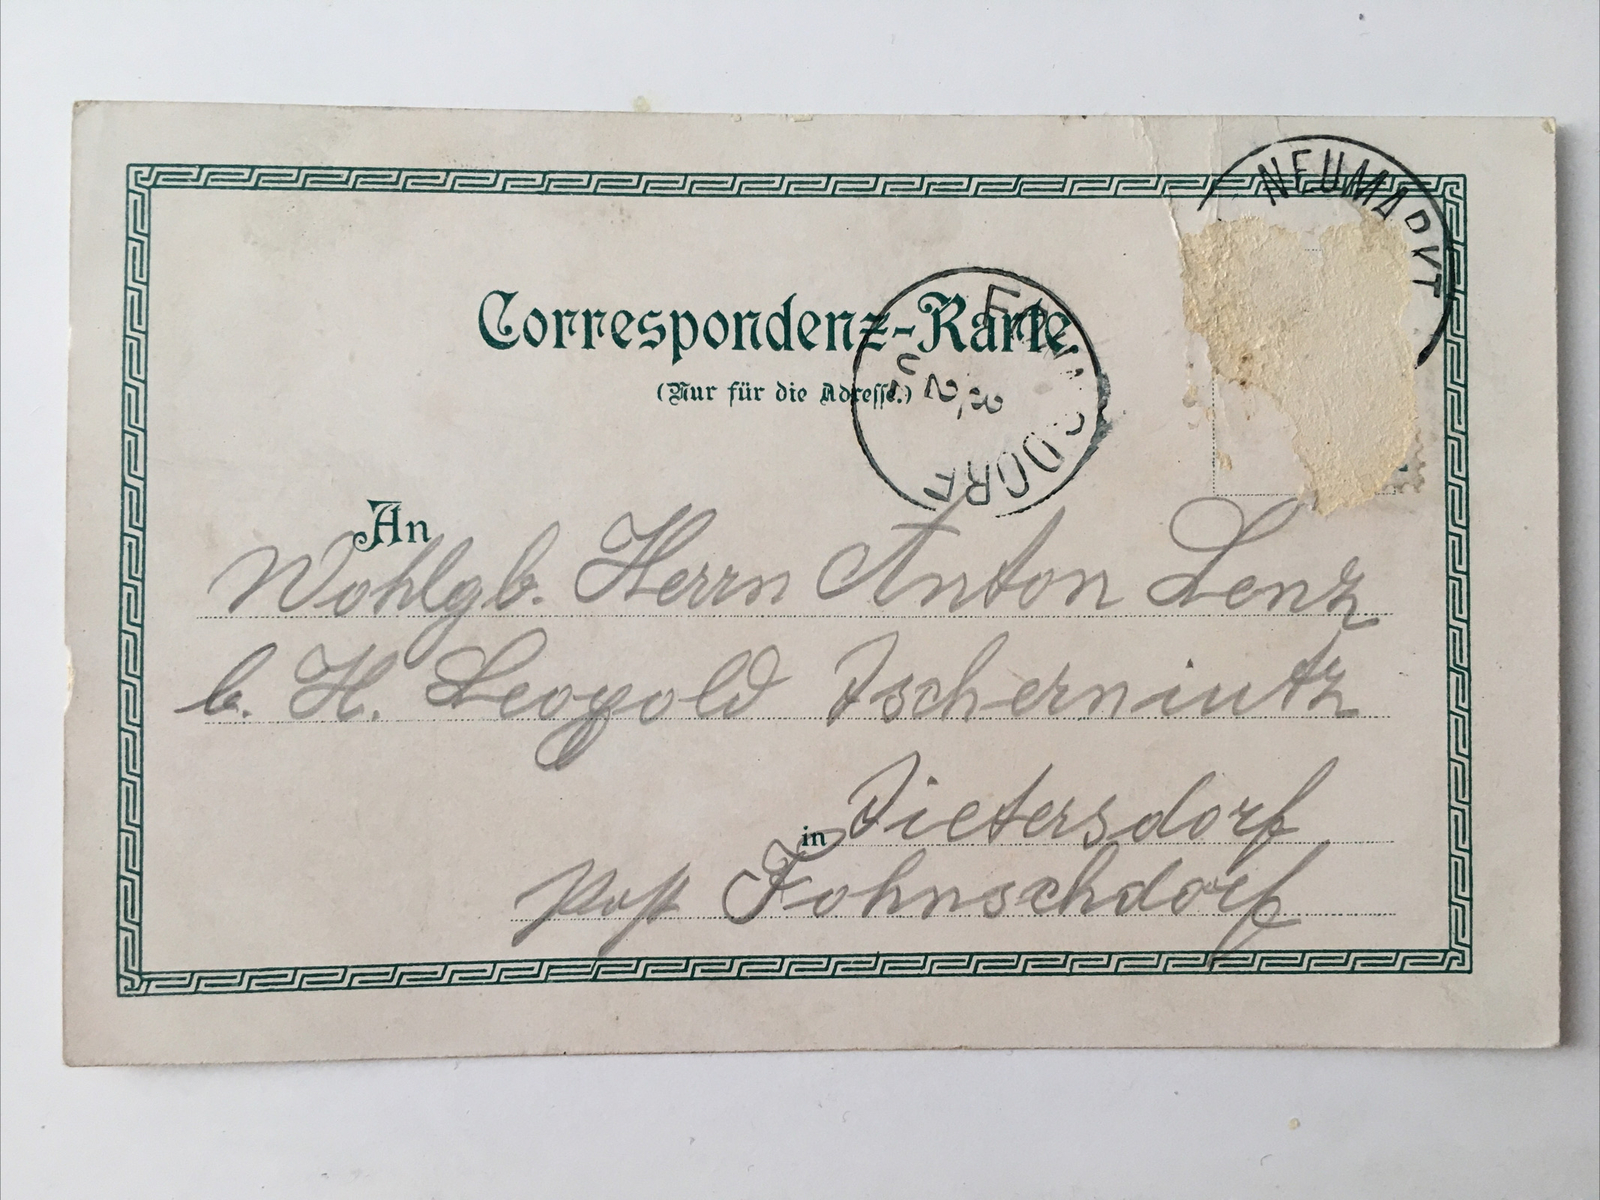 NEUMARKT
Correspondenz-Karte.
(Nur für die Adresse.)
An
Wohlgb. Herrn Anton Lenz
b. H. Leopold Tscherniutz
in Dietersdorf
Post Fohnschdorf